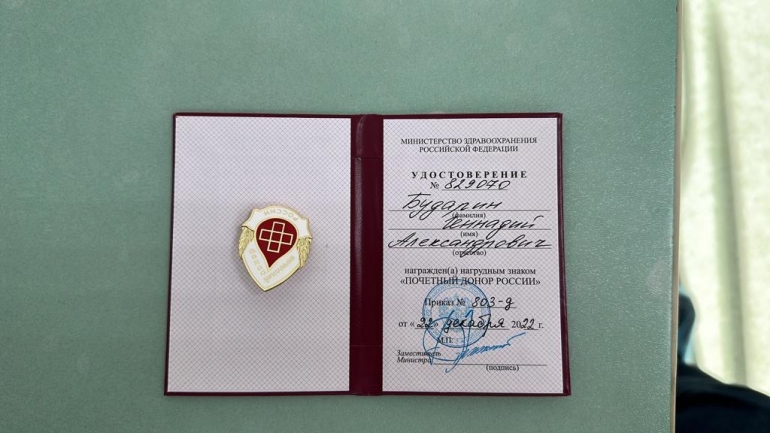 РОССИИ
ПОЧЕТНЫЙ ДОНОР
МИНИСТЕРСТВО ЗДРАВООХРАНЕНИЯ
РОССИЙСКОЙ ФЕДЕРАЦИИ
УДОСТОВЕРЕНИЕ
№ 829070
Бударин
(фамилия)
Геннадий
(имя)
Александрович
(отчество)
награжден(а) нагрудным знаком
«ПОЧЕТНЫЙ ДОНОР РОССИИ»
Приказ № 803-д
от «22» декабря 2022 г.
М.П.
Заместитель
Министра
(подпись)